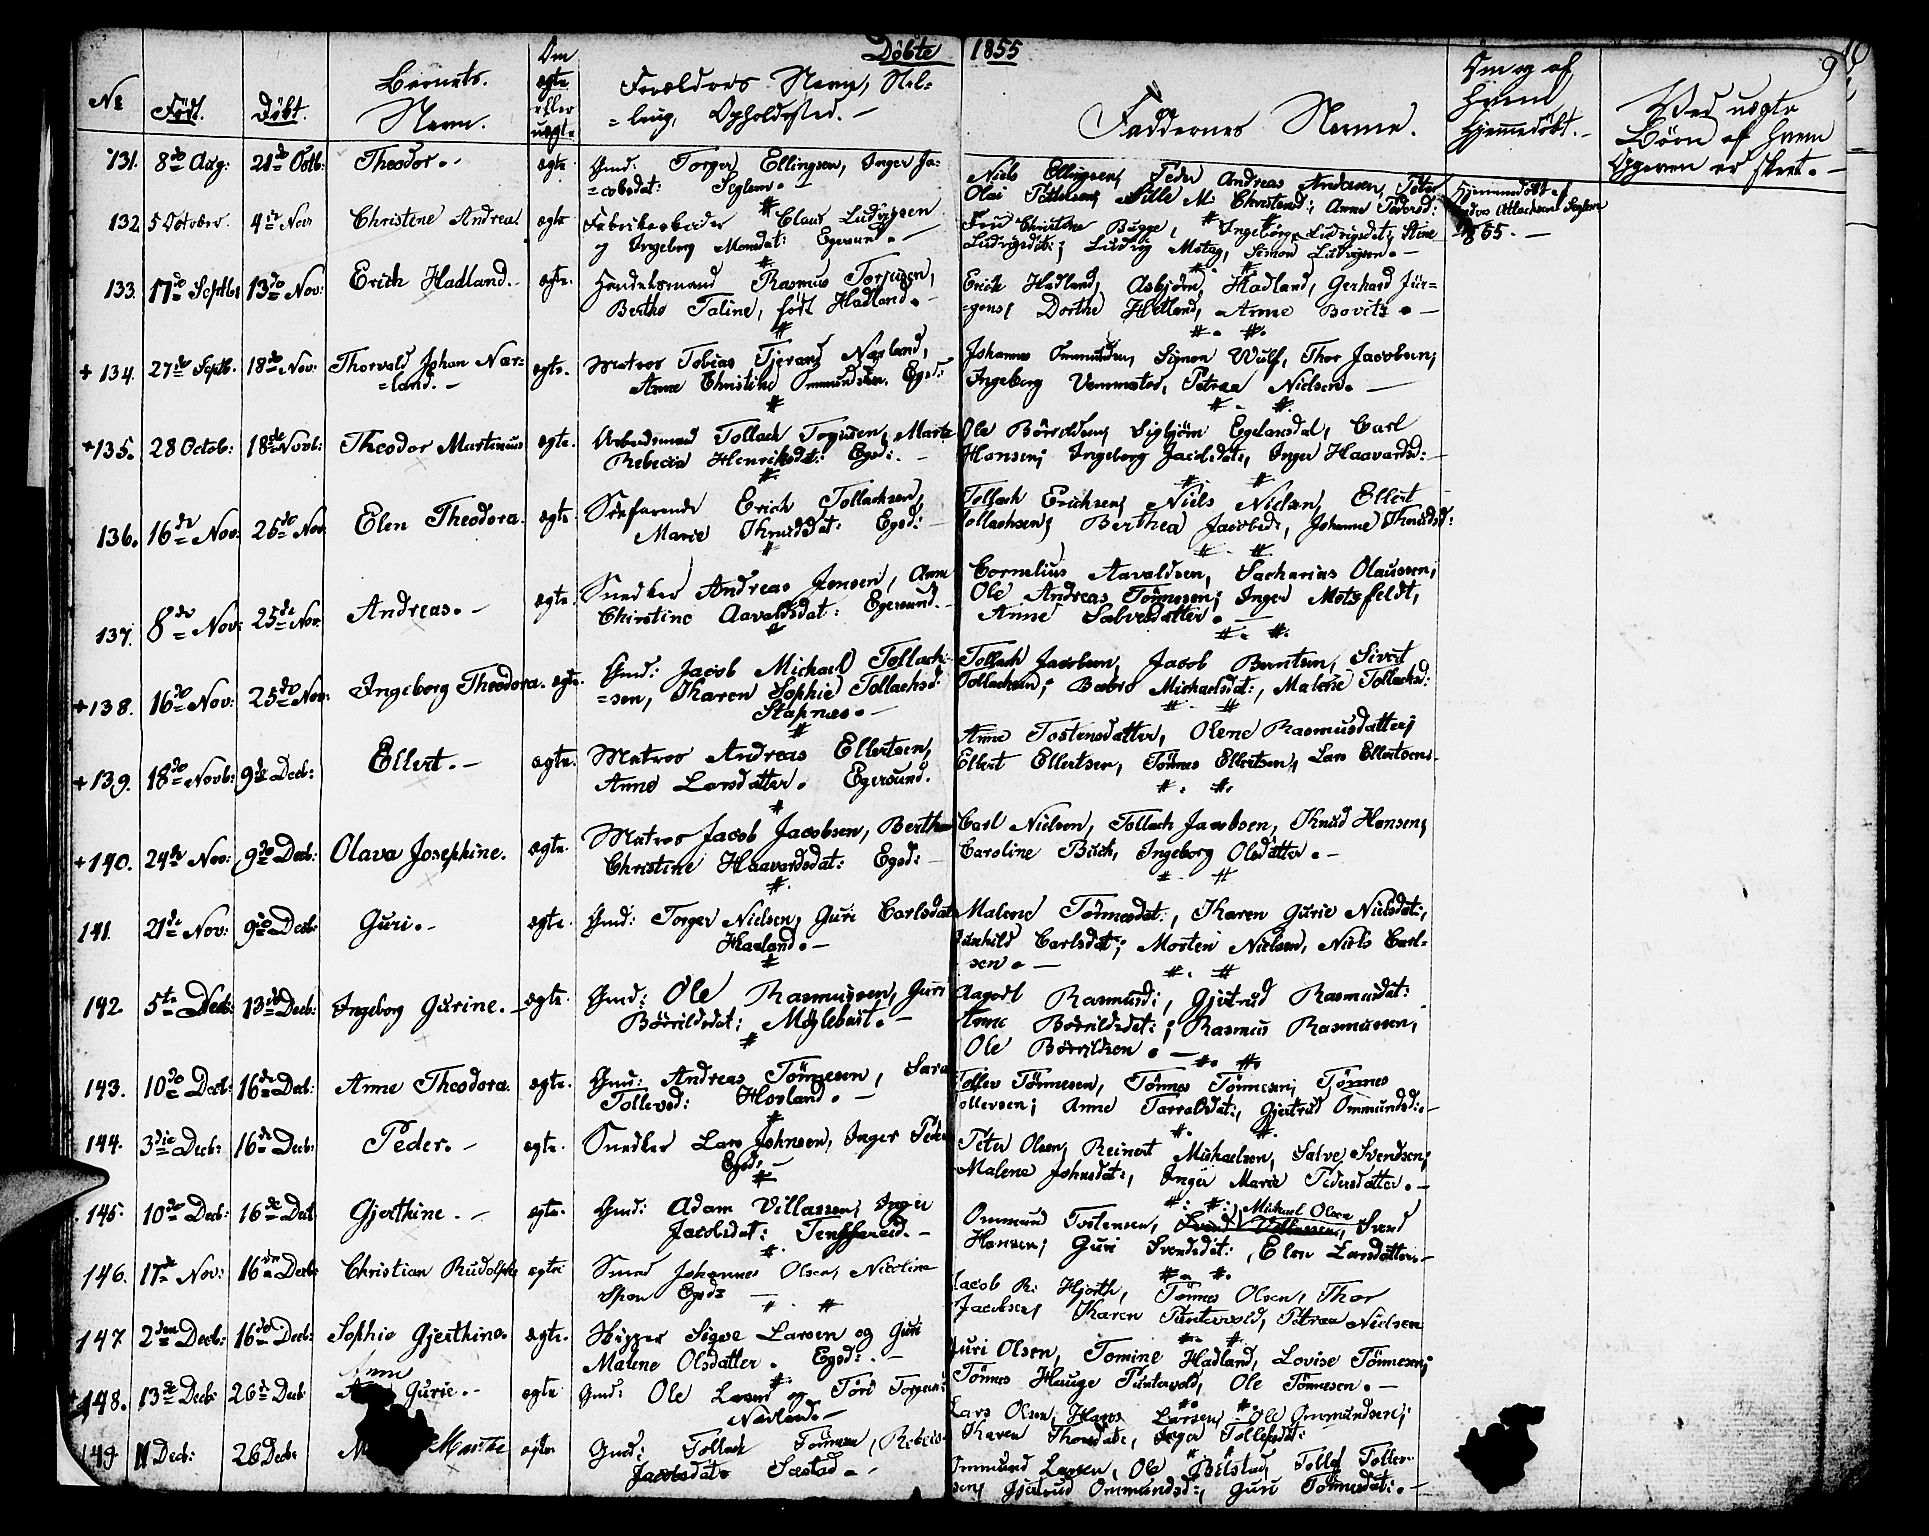 Döbte 1855
9
No Födt. Döbt. Barnets Navn. Om ægte eller uægte Forældres Navn, Stilling, Opholdssted. — Faddernes Navne. Om og af hvem hjemmedöbt. — Ved uægte Börn af hvem Opgaven er skeet. —
131. 8de Aug: 21de Octb: Theodor. — ægte Gmd: Torger Ellingsen, Inger Ja-
=cobsdat: Seglem. —
Niels Ellingsen, Peder Andreas Andersen, Peter
Olai Sille M. Christensd: Anne Pedersd:
Hjemmedöbt af
1855. —
132 5 October 4de Nov Christine Andrea ægte Fabrikarbeider Claus Ludvigsen
og Ingeborg Monsdat: Egersund. —
Fru Christine Bugge, Ingeborg Ludvigsdat; Stine
Ludvigsdat; Ludvig Simon Ludvigsen. —
133. 17de Septb: 13de Nov: Erich Hadland. — ægte. Handelsmand Rasmus Torjusen,
Berthe Taline, født Hadland. —
Erich Hadland, Asbjörn Hadland, Gerhard Jür-
=gens, Dorthe Hetland, Anne Bovitz. —
+ 134. 27de Septb. 18de Nov: Thorvald Johan Nær-
=land. — ægte. Matros Tobias Tjerand Nærland,
Anne Christine Ommundsen. Egsd:
Johannes Ommundsen, Simon Wulf, Thor Jacobsen;
Ingeborg Vemmestad, Petraa Nielsen. —
+ 135. 28 Octob: 18de Novb: Theodor Martinius ægte. Arbeidsmand Tollach Torjusen, Marte
Rebecca Henriksdat: Egsd: —
Ole Börildsen, Sigbjörn Egelandsdal, Carl
Hansen; Ingeborg Jacobsdat:, Inger Haavardsd: —
136. 16de Nov. 25de Nov Elen Theodora. ægte. Söefarende Erich Tollachsen,
Marie Knudsdat: Egsd: —
Tollach Erichsen, Niels Nielsen, Ellert
Tollachsen; Berthea Jacobsd:, Johanne Knudsd:
137. 8de Nov: 25de Nov. Andreas. — ægte. Snedker Andreas Jensen, Anne
Christine Aavaldsdat: Egersund. —
Cornelius Aavaldsen, Sacharias Olaussen;
Ole Andreas Tönnesen; Inger Motzfeldt,
Anne Salvesdatter. —
+138. 16de Nov: 25de Nov: Ingeborg Theodora. ægte. Gmd: Jacob Michael Tollach-
=sen, Karen Sophie Tollachsd:
Stapnæs. —
Tollach Jacobsen, Jacob Berntsen, Sivert
Tollachsen; Michaelsdat:, Malene Tollachsd:
+139. 18de Novb: 9de Decb: Ellert. — ægte. Matros Andreas Ellertsen,
Anne Larsdatter. Egersund.
Anne Tostensdatter, Olene Rasmusdatter;
Ellert Ellertsen, Tönnes Ellertsen, Lars Ellertsen. —
+140. 24de Nov: 9de Decb: Olava Josephine. ægte. Matros Jacob Jacobsen, Berthe
Christine Haavardsdat: Egsd: —
Carl Nielsen, Tollach Jacobsen, Knud Hansen,
Caroline Birk, Ingeborg Olsdatter. —
141. 21de Nov: 9de Decb: Guri. — ægte. Gmd: Torger Nielsen, Guri Carlsdat
Haaland. —
Malene Tönnesdat:, Karen Gurie Nielsdat;
Gunhild Carlsdat:; Morten Nielsen, Niels Carl-
sen. —
142. 5te Decb: 13de Decb: Ingeborg Gurine. — ægte. Gmd: Ole Rasmussen, Guri
Börrildsdat: Myglebust. —
Aagodt Rasmusd:, Gjertrud Rasmusdat:
Anne Börrildsdat:; Rasmus Rasmussen,
Ole Börrildsen. —
143. 10de Decb: 16de Decb: Anne Theodora. ægte. Gmd: Andreas Tönnesen, Sara
Tollevsd: Hovland. —
Tollev Tönnesen, Tönnes Tönnesen; Tönnes
Tollevsen; Anne Tarraldsdat:, Gjertrud Ommundsd: —
144. 3die Decb: 16de Decb: Peder. — ægte. Snedker Lars Johnsen, Inger Peders
Egsd: —
Peter Olsen, Reinert Michaelsen, Salve Svendsen;
Malene Johnsdat:, Inger Marie Pedersdatter. —
145. 10de Decb: 16de Decb Gjerthine. — ægte. Gmd: Adam Villassen, Inger
Jacobsdat: Tengsfareid. —
Ommund Tostensen, Michael Olsen Svend
Hansen; Guri Svendsdat:, Elen Larsdatter. —
146. 17de Nov: 16de Decb: Christian Rudolph ægte Smed Johannes Olsen, Nicoline
Spon Egsd: —
Jacob R. Hjorth, Tönnes Olsen, Thor
Jacobsen, Karen Puntervold, Petraa Nielsen
147 2den Decb: 16de Decb: Sophie Gjerthine. ægte. Skipper Sigve Larsen og Guri
Malene Olsdatter. Egsd: —
Guri Olsen, Tomine Hadland, Lovise Tönnesen;
Tönnes Hauge Puntervold, Ole Tönnesen. —
+148. 13de Decb: 26de Decb Anne Gurie. — ægte Gmd: Ole Larsen og Töri Torgers
Nevland. —
Lars Olsen, Hans Larsen, Ole Ommundsen;
Karen Thorsdat:, Inger Tollefsdat:
149 11 Decb: 26 Decb: Marthe ægte. Gmd: Tollach Tönnesen, Rebek-
Jacobsdat. Sæstad. —
Ommund Larsen, Ole Bilstad, Tollef Tollef-
sen; Gjertrud Ommundsd:, Guri Tönnesdat: —